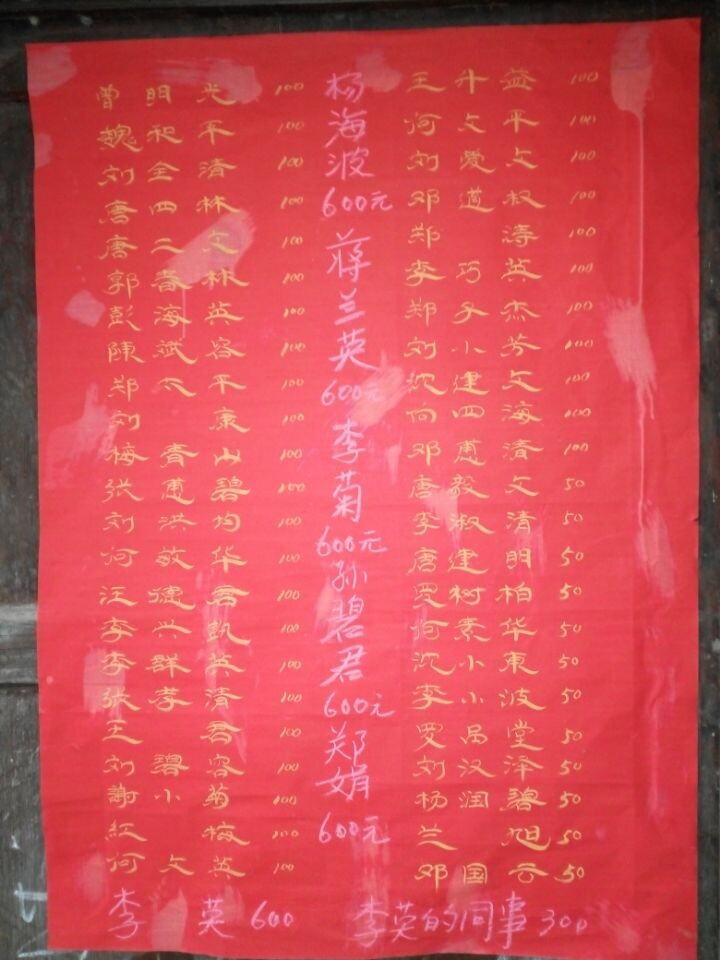 曾明光 100
魏和平 100
刘全清 100
唐四林 100
唐二文 100
郭春林 100
彭海英 100
陳斌容 100
郑太平 100
刘康 100
梅青山 100
张惠碧 100
刘洪均 100
何敏华 100
汪德君 100
李兴凯 100
李群英 100
张孝清 100
王君 100
刘碧容 100
謝小菊 100
红梅 100
何文英 100
杨海波
600元
蒋兰英
600元
李菊
600元
孙碧君
600元
郑娟
600元
王升益 100
何文平 100
刘爱文 100
邓道权 100
郑涛 100
李巧英 100
郑子杰 100
刘小芳 100
沈建文 100
何四海 100
邓惠清 100
唐毅文 50
李淑清 50
唐建明 50
罗树柏 50
何素华 50
沈小东 50
李小波 50
罗昌堂 50
刘汉泽 50
杨润碧 50
兰旭 50
邓国云 50
李英 600
李英的同事 300